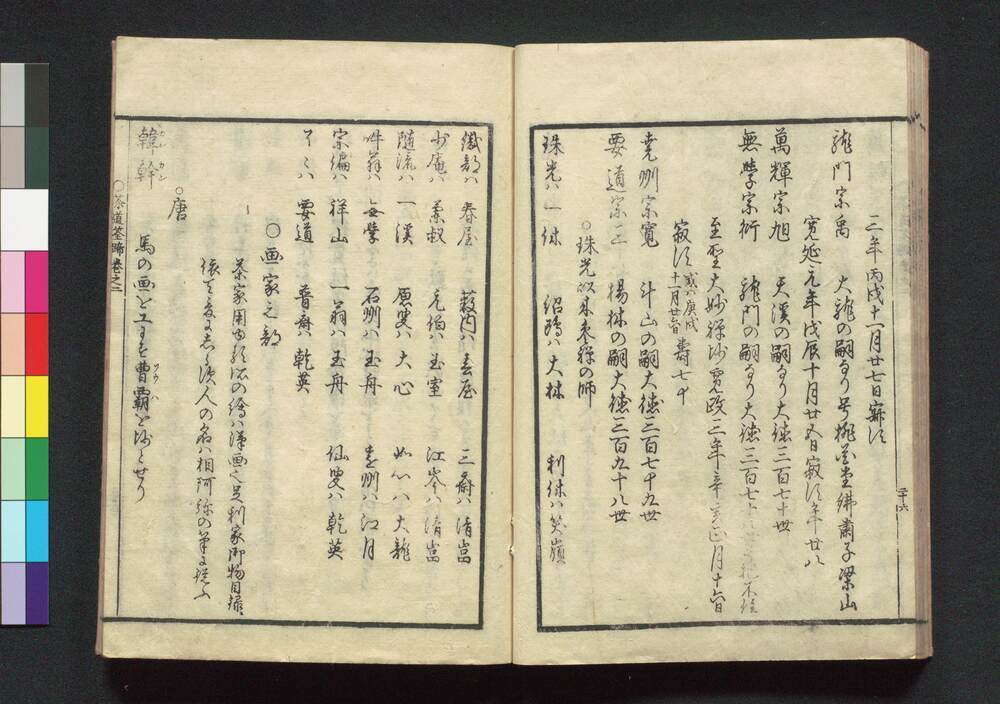 三年丙戌十一月廿七日寂す
龍門宗禹　大龍の嗣なり号桃花堂綿蘭子梁山
寛延元年戊辰十月廿五日寂す年廿八
萬輝宗旭　天溪の嗣なり大徳三百七十世
無學宗衍　龍門の嗣なり大徳三百七十
至聖大妙禅師寛政三年辛亥正月十六日
寂す或ハ庚戌十一月廿六日壽七十
堯州宗寛　斗山の嗣大徳三百七十九世
要道宗三　揚林の嗣大徳三百九十八世
○珠光以来参禅の師
珠光ハ一休　紹鴎ハ大林　利休ハ笑嶺
三十六
織部ハ春屋　薮内ハ春屋　三斎ハ清岩
少庵ハ蘭叔　元伯ハ玉室　江岑ハ清岩
随流ハ一溪　原叟ハ大心　如心ハ大龍
啐翁ハ無學　石州ハ玉舟　遠州ハ江月
宗編ハ祥山　一翁ハ玉舟　仙叟ハ乾英
了々ハ要道　普斎ハ乾英
○画家之部
茶家用ゆる所の繪ハ漢画之足利家御物目録に
依て爰にあらハす人の名ハ相阿弥の筆に従ふ
○唐
韓幹　馬の画に工ミなり曹覇を師とせり
カンカン
ソウハ
○茶道筌蹄巻之二